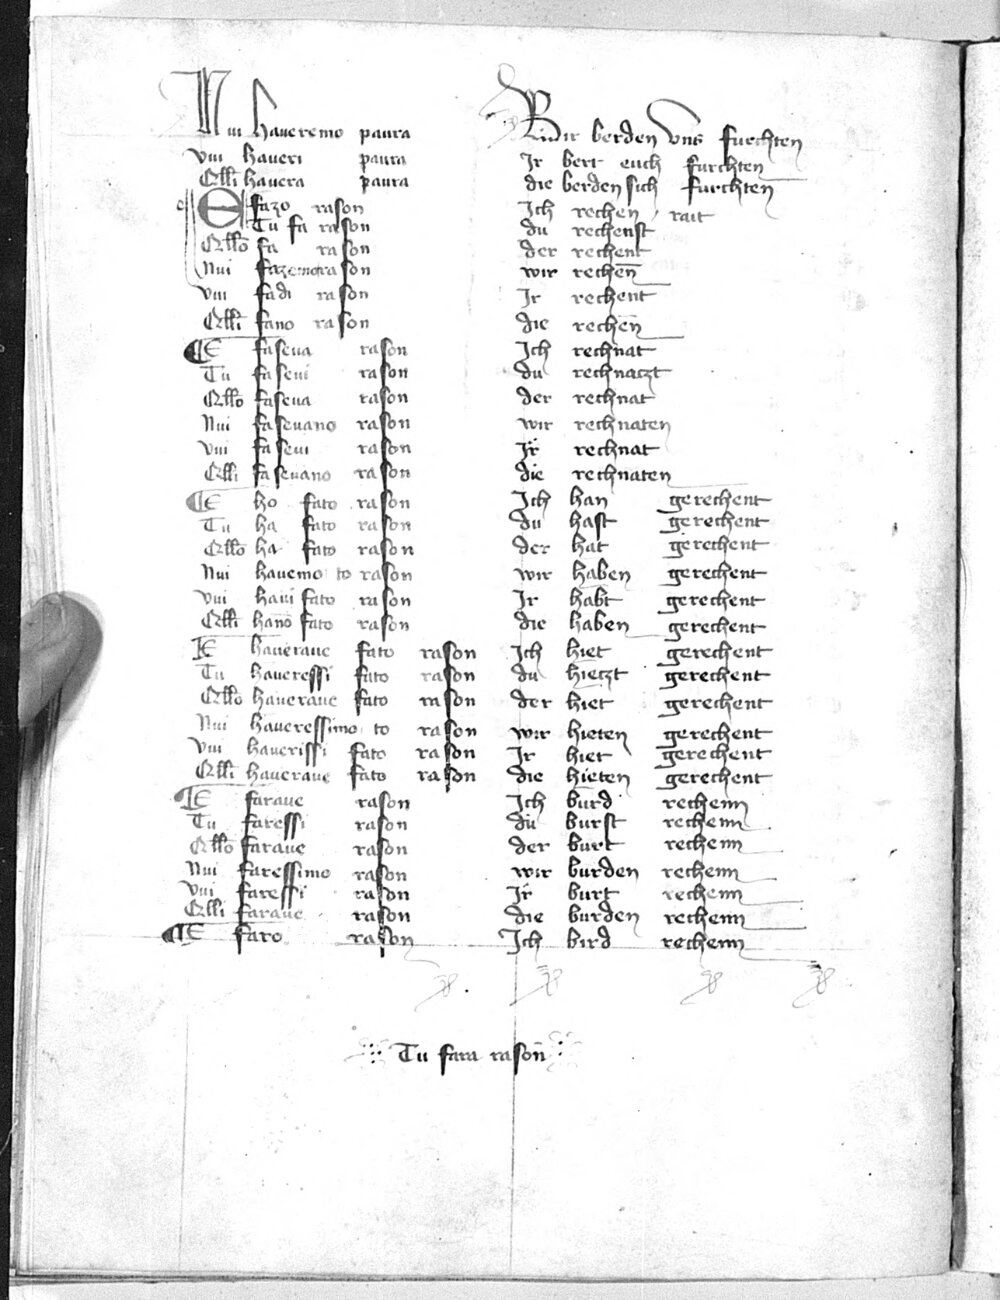 Nui haveremo paura Wir berden vns furchten
vui haveri paura Jr bert euch furchten
Qlli havera paura die berden sich furchten
E fazo rason Ich rechen rait
Tu fa rason du rechenst
Qllo fa rason der rechent
Nui fazemo rason wir rechen̄
vui fadi rason Jr rechent
Qlli fano rason die rechen̄
E faseua rason Ich rechnat
Tu faseui rason du rechnaczt
Qllo faseua rason der rechnat
Nui faseuano rason wir rechnaten
vui faseui rason Jr rechnat
Qlli faseuano rason die rechnaten
E ho fato rason Ich han gerechent
Tu ha fato rason du hast gerechent
Qllo ha fato rason der hat gerechent
Nui hauemo to rason wir haben gerechent
vui haui fato rason Jr habt gerechent
Qlli hano fato rason die haben gerechent
E haueraue fato rason Ich hiet gerechent
Tu haueressi fato rason du hieczt gerechent
Qllo haueraue fato rason der hiet gerechent
Nui haueressimo to rason wir hieten gerechent
vui hauerissi fato rason Jr hiet gerechent
Qlli haueraue fato rason die hieten gerechent
E faraue rason Ich burd rechenn
Tu faressi rason du burst rechenn
Qllo faraue rason der burt rechenn
Nui faressimo rason wir burden rechenn
vui faressi rason Jr burt rechenn
Qlli faraue rason die burden rechenn
E faro rason Ich bird rechenn
Tu fara rason̄